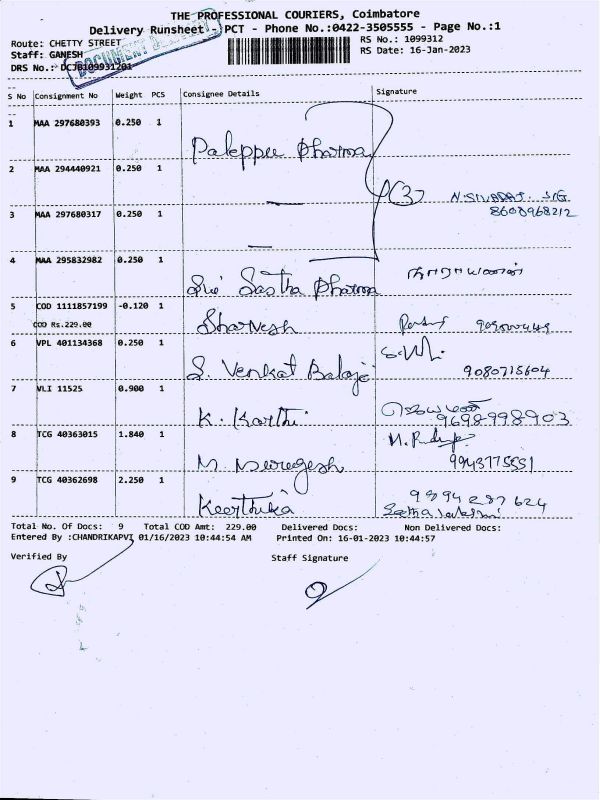 THE PROFESSIONAL COURIERS, Coimbatore
Delivery Runsheet - PCT - Phone No.:0422-3505555 - Page No.:1
Route: CHETTY STREET
Staff: GANESH
DRS No.: DCJB109931201
RS No.: 1099312
RS Date: 16-Jan-2023
S No Consignment No Weight PCS Consignee Details Signature
1 MAA 297680393 0.250 1 Paleppee Pharma
2 MAA 294440921 0.250 1 —
(3) N.SIVARAJ
8608968212
3 MAA 297680317 0.250 1 —
4 MAA 295832982 0.250 1 Sri Sastha Pharma நாராயணன்
5 COD 1111857199 -0.120 1 Sharvesh
COD Rs.229.00
6 VPL 401134368 0.250 1 S. Venkat Balaje 9080715604
7 VLI 11525 0.900 1 K. Karthi 9698998903
8 TCG 40363015 1.840 1 M. Murugesh 9943775551
9 TCG 40362698 2.250 1 Keerthika 9894287624
Total No. Of Docs: 9 Total COD Amt: 229.00 Delivered Docs: Non Delivered Docs:
Entered By :CHANDRIKAPVT 01/16/2023 10:44:54 AM Printed On: 16-01-2023 10:44:57
Verified By Staff Signature